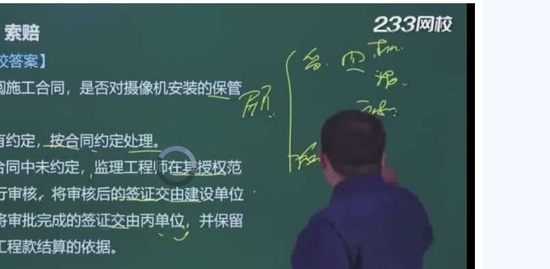 索赔
233网校
校答案】
阅施工合同，是否对摄像机安装的保管
有约定，按合同约定处理。
合同中未约定，监理工程师在其授权范
行审核，将审核后的签证交由建设单位
将审批完成的签证交由丙单位，并保留
工程款结算的依据。